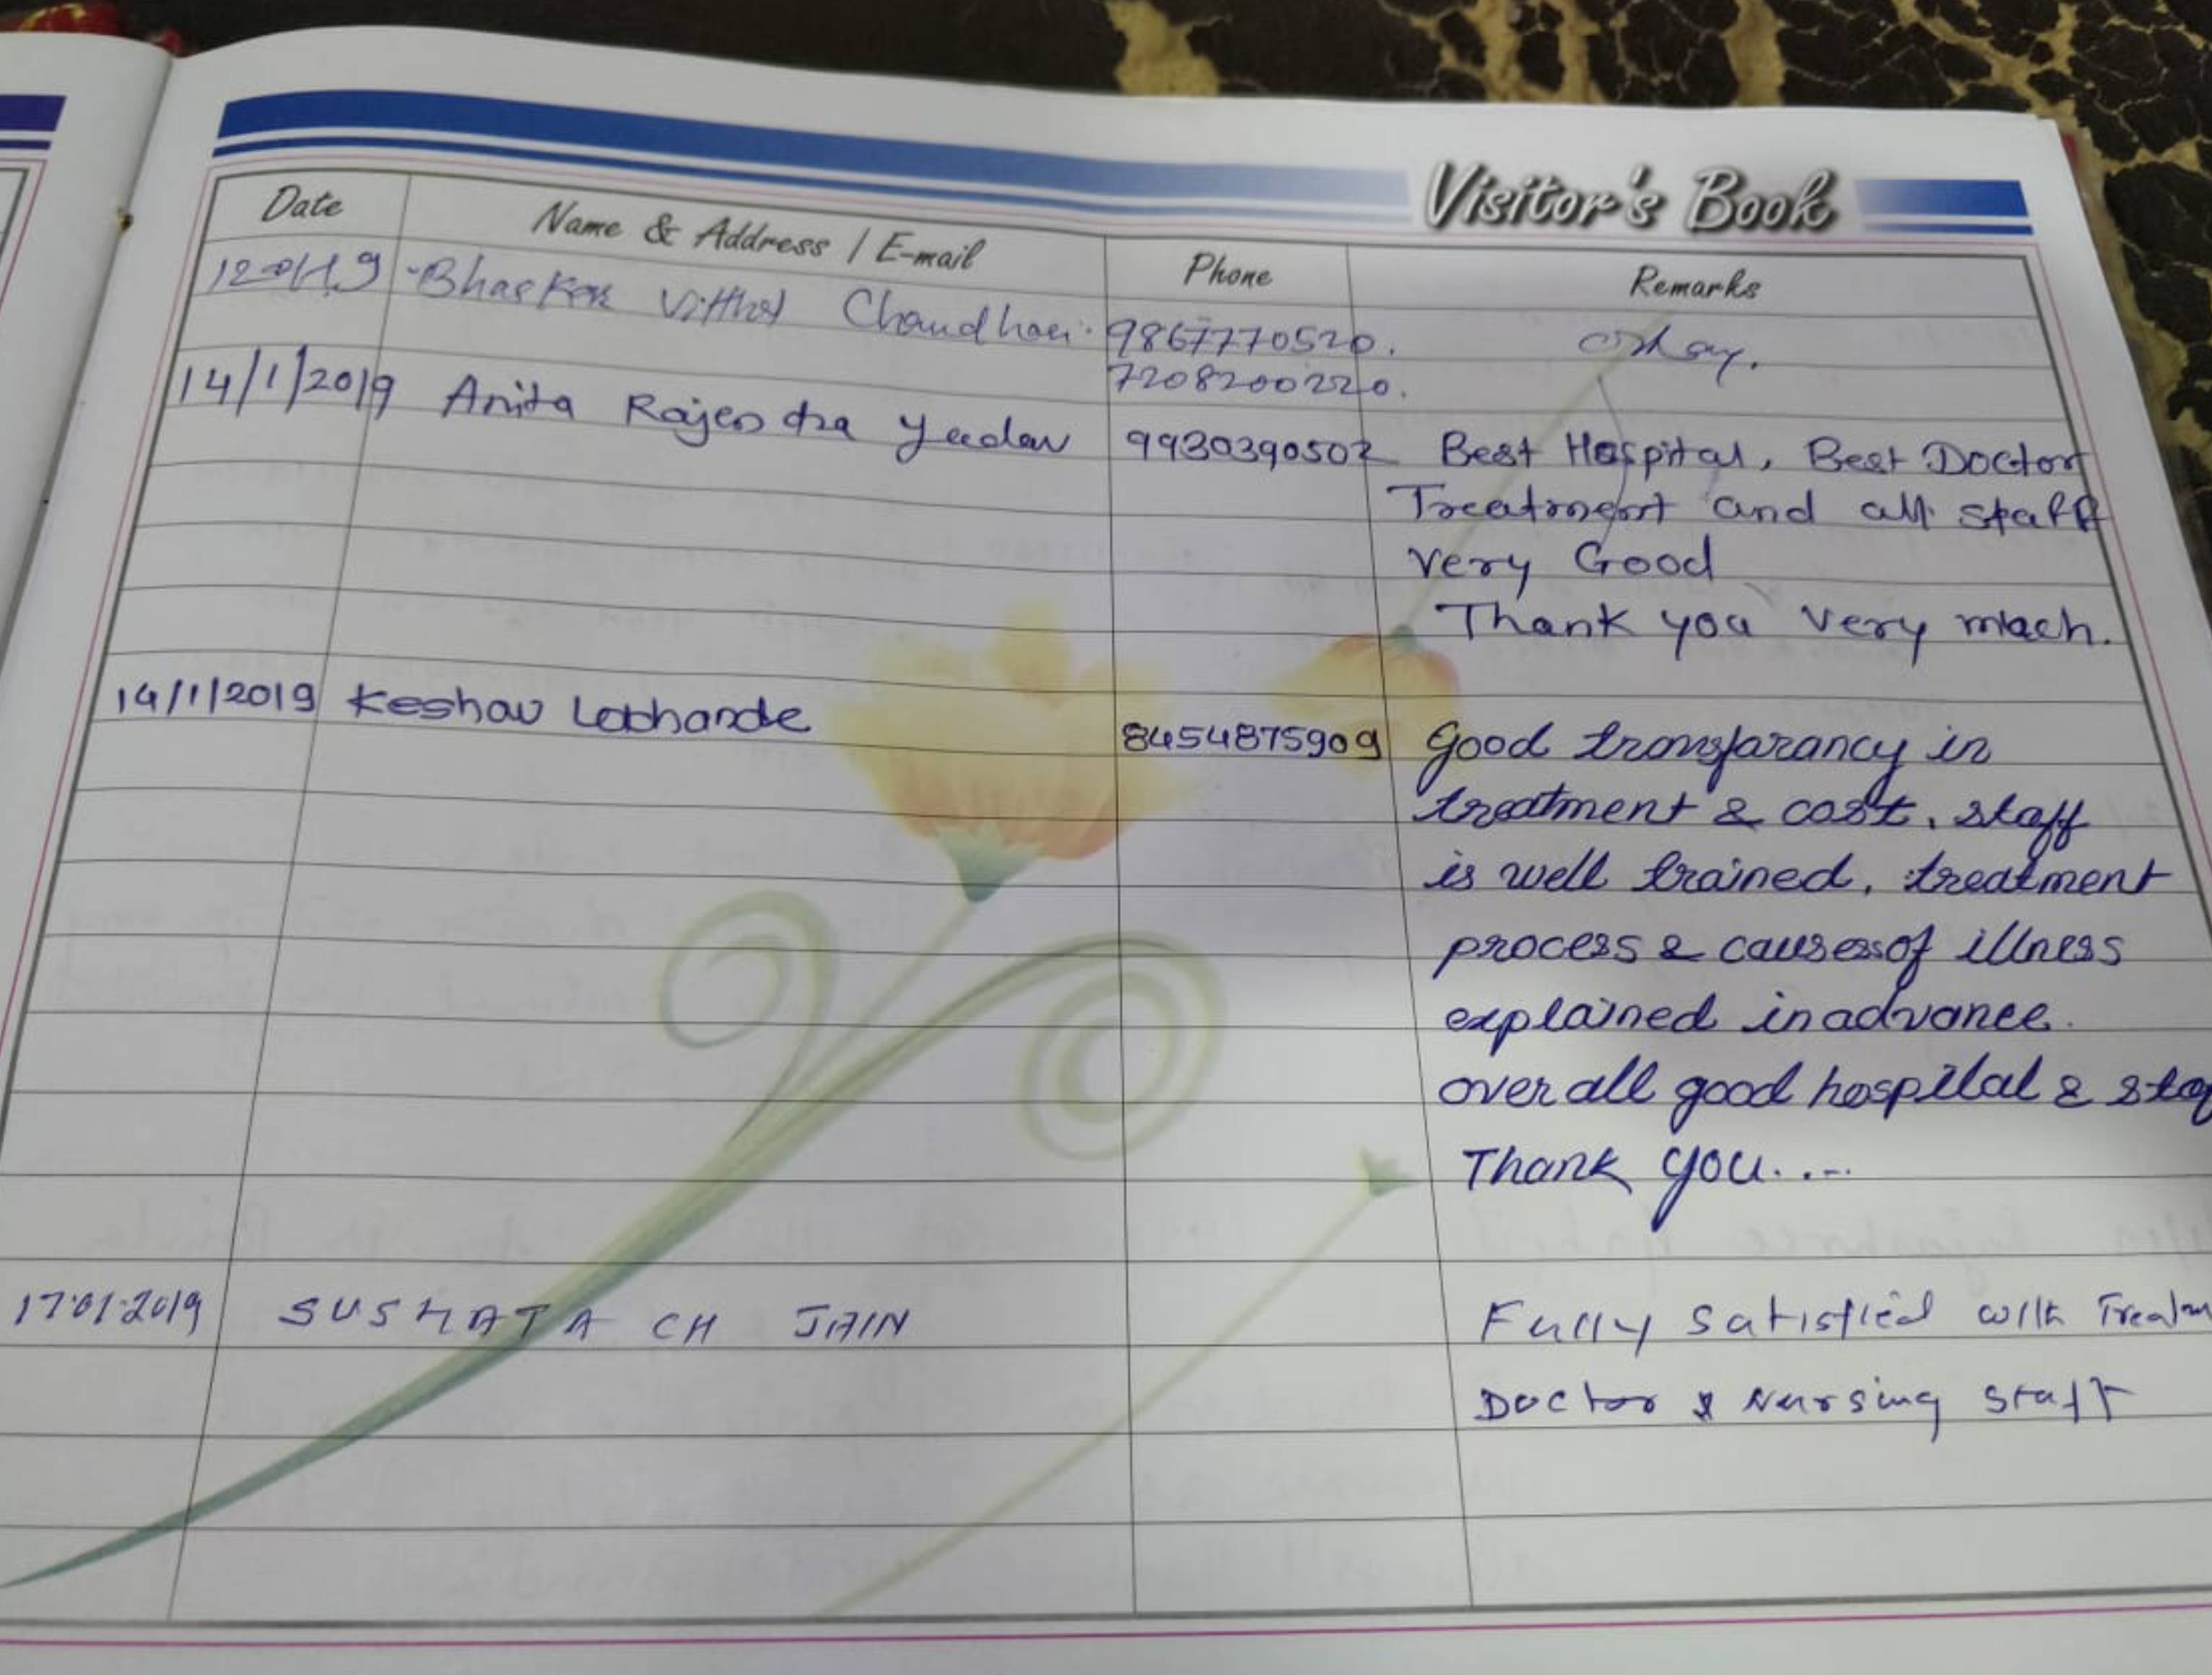 Visitor's Book
Date Name & Address / E-mail Phone Remarks
Bhaskar Vitthal Chaudhari. 9867770520. okay.
7208200220.
14/1/2019 Anita Rajendra Yadav 9930390502 Best Hospital, Best Doctor
Treatment and all staff
very Good
Thank you very mach.
14/1/2019 Keshav 8454875909 Good transparancy in
treatment & cost. staff
is well trained, treatment
process & causes of illness
explained in advance.
over all good hospital &
Thank you.....
17.01.2019 SUSMATA CH JAIN Fully Satisfied with
Doctor & Nursing Staff